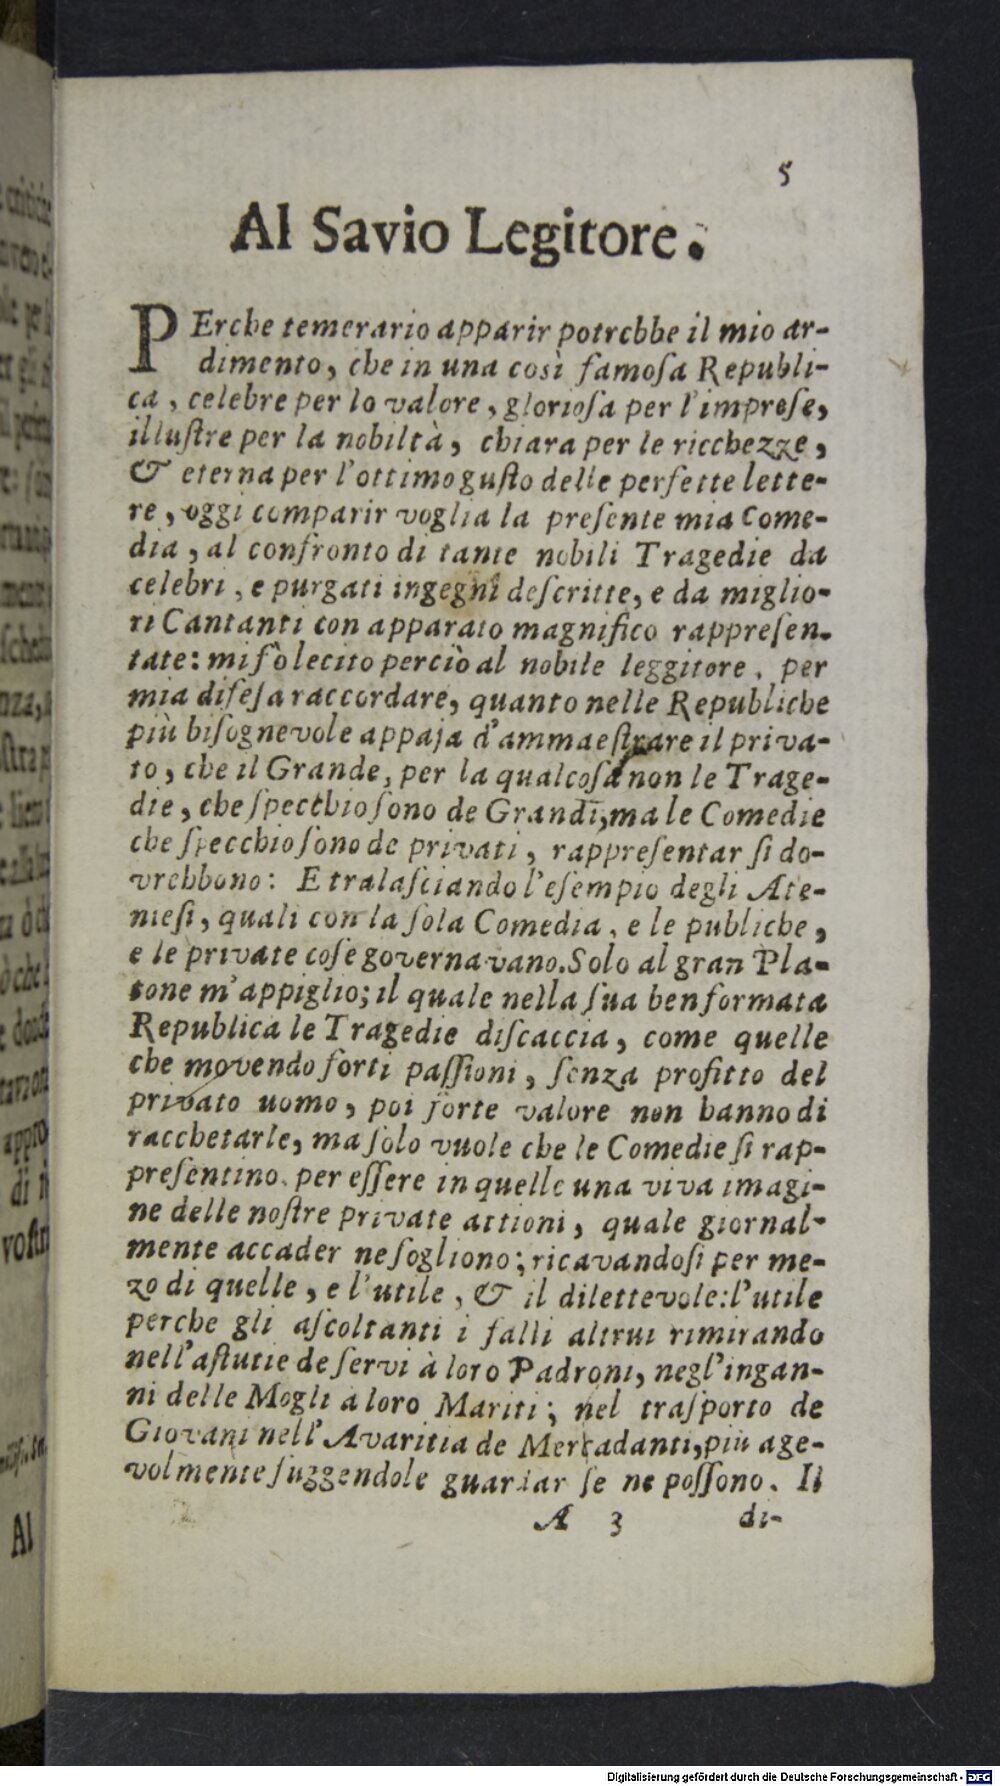 5
Al Savio Legitore.
PErche temerario apparir potrebbe il mio ar-
dimento, che in una così famoſa Republi-
ca, celebre per lo valore, glorioſa per l'impreſe,
illuſtre per la nobiltà, chiara per le ricchezze,
& eterna per l'ottimo guſto delle perfette lette-
re, oggi comparir voglia la preſente mia Come-
dia, al confronto di tante nobili Tragedie da
celebri, e purgati ingegni deſcritte, e da miglio-
ri Cantanti con apparato magnifico rappreſen-
tate: mi fò lecito perciò al nobile leggitore, per
mia difeſa raccordare, quanto nelle Republiche
più biſognevole appaja d'ammaeſtrare il priva-
to, che il Grande, per la qualcoſa non le Trage-
die, che ſpecchio ſono de Grandi, ma le Comedie
che ſpecchio ſono de privati, rappreſentar ſi do-
vrebbono: E tralaſciando l'eſempio degli Ate-
nieſi, quali con la ſola Comedia, e le publiche,
e le private coſe governavano. Solo al gran Pla-
tone m'appiglio; il quale nella ſua ben formata
Republica le Tragedie diſcaccia, come quelle
che movendo forti paſſioni, ſenza profitto del
privato uomo, poi forte valore non hanno di
racchetarle, ma ſolo vuole che le Comedie ſi rap-
preſentino, per eſſere in quelle una viva imagi-
ne delle noſtre private attioni, quale giornal-
mente accader ne ſogliono; ricavandoſi per me-
zo di quelle, e l'utile, & il dilettevole: l'utile
perche gli aſcoltanti i falli altrui rimirando
nell'aſtutie de ſervi à loro Padroni, negl'ingan-
ni delle Mogli a loro Mariti; nel traſporto de
Giovani nell'Avaritia de Mercadanti, più age-
volmente fuggendole guardar ſe ne poſſono. Il
A 3 di-
Al
Digitalisierung gefördert durch die Deutsche Forschungsgemeinschaft - DFG